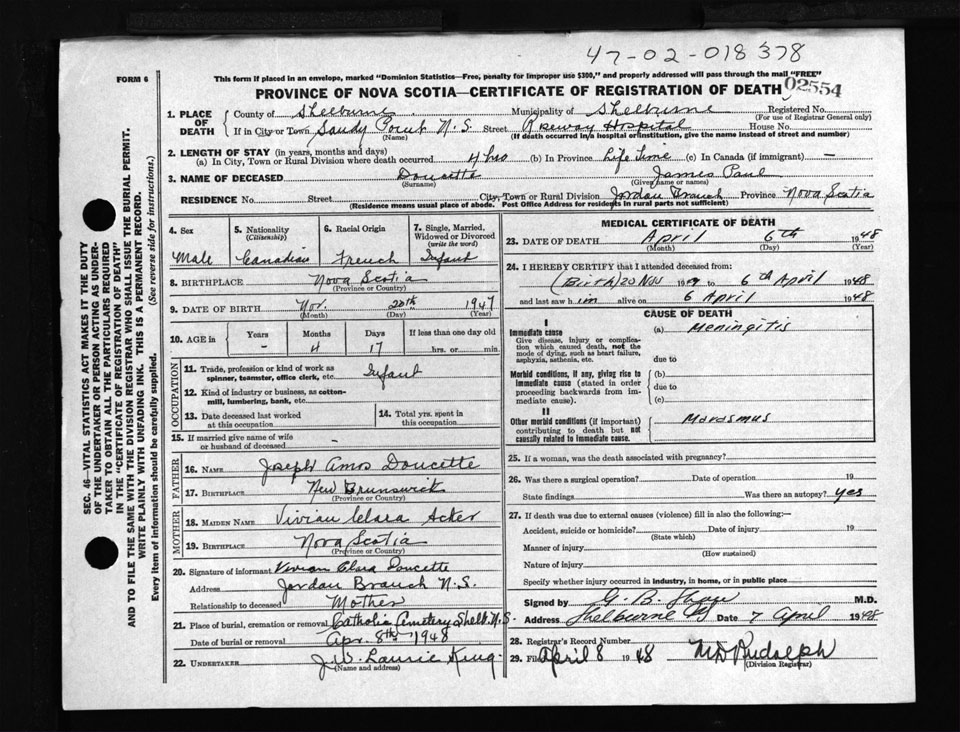 47-02-018378
FORM 6
This form if placed in an envelope, marked "Dominion Statistics—Free, penalty for improper use $300," and properly addressed will pass through the mail "FREE"
PROVINCE OF NOVA SCOTIA—CERTIFICATE OF REGISTRATION OF DEATH
02554
1. PLACE OF DEATH
County of Shelburne
Municipality of Shelburne
Registered No.
(For use of Registrar General only)
If in City or Town Sandy Point N.S. Street Roseway Hospital House No.
(Name) (If death occurred in a hospital or institution, give the name instead of street and number)
2. LENGTH OF STAY (in years, months and days)
(a) In City, Town or Rural Division where death occurred 4 hrs (b) In Province Life Time (c) In Canada (if immigrant) —
3. NAME OF DECEASED Doucette James Paul
(Surname) (Given name or names)
RESIDENCE No. Street City, Town or Rural Division Jordan Branch Province Nova Scotia
(Residence means usual place of abode. Post Office Address for residents in rural parts not sufficient)
4. Sex
Male
5. Nationality
(Citizenship)
Canadian
6. Racial Origin
French
7. Single, Married, Widowed or Divorced
(write the word)
Infant
8. BIRTHPLACE Nova Scotia
(Province or Country)
9. DATE OF BIRTH Nov. 20th 1947
(Month) (Day) (Year)
10. AGE in
Years Months Days If less than one day old
- 4 17 hrs. or min.
OCCUPATION
11. Trade, profession or kind of work as spinner, teamster, office clerk, etc. Infant
12. Kind of industry or business, as cotton-mill, lumbering, bank, etc.
13. Date deceased last worked at this occupation
14. Total yrs. spent in this occupation
15. If married give name of wife or husband of deceased -
FATHER
16. NAME Joseph Amos Doucette
17. BIRTHPLACE New Brunswick
(Province or Country)
MOTHER
18. MAIDEN NAME Vivian Clara Acker
19. BIRTHPLACE Nova Scotia
(Province or Country)
20. Signature of informant Vivian Clara Doucette
Address Jordan Branch N.S.
Relationship to deceased Mother
21. Place of burial, cremation or removal Catholic Cemetery Shelb. N.S.
Date of burial or removal Apr. 8th 1948
22. UNDERTAKER J.W. Laurie King
(Name and address)
MEDICAL CERTIFICATE OF DEATH
23. DATE OF DEATH April 6th 1948
(Month) (Day) (Year)
24. I HEREBY CERTIFY that I attended deceased from:
(Birth) 20 Nov 1947 to 6th April 1948
and last saw him alive on 6 April 1948
CAUSE OF DEATH
I
Immediate cause (a) Meningitis
Give disease, injury or complication which caused death, not the mode of dying, such as heart failure, asphyxia, asthenia, etc.
due to
Morbid conditions, if any, giving rise to immediate cause (stated in order proceeding backwards from immediate cause).
(b)
due to
(c)
II
Other morbid conditions (if important) contributing to death but not causally related to immediate cause.
Marasmus
25. If a woman, was the death associated with pregnancy?
26. Was there a surgical operation? Date of operation 19
State findings Was there an autopsy? yes
27. If death was due to external causes (violence) fill in also the following:—
Accident, suicide or homicide? Date of injury 19
(State which)
Manner of injury
(How sustained)
Nature of injury
Specify whether injury occurred in industry, in home, or in public place
Signed by G. B. M.D.
Address Shelburne Date 7 April 1948
28. Registrar's Record Number
29. Filed April 8 1948 Rudolph
(Division Registrar)
SEC. 46—VITAL STATISTICS ACT MAKES IT THE DUTY
OF THE UNDERTAKER OR PERSON ACTING AS UNDERTAKER TO OBTAIN ALL THE PARTICULARS REQUIRED
IN THE "CERTIFICATE OF REGISTRATION OF DEATH"
AND TO FILE THE SAME WITH THE DIVISION REGISTRAR WHO SHALL ISSUE THE BURIAL PERMIT.
WRITE PLAINLY WITH UNFADING INK. THIS IS A PERMANENT RECORD.
Every item of information should be carefully supplied. (See reverse side for instructions.)